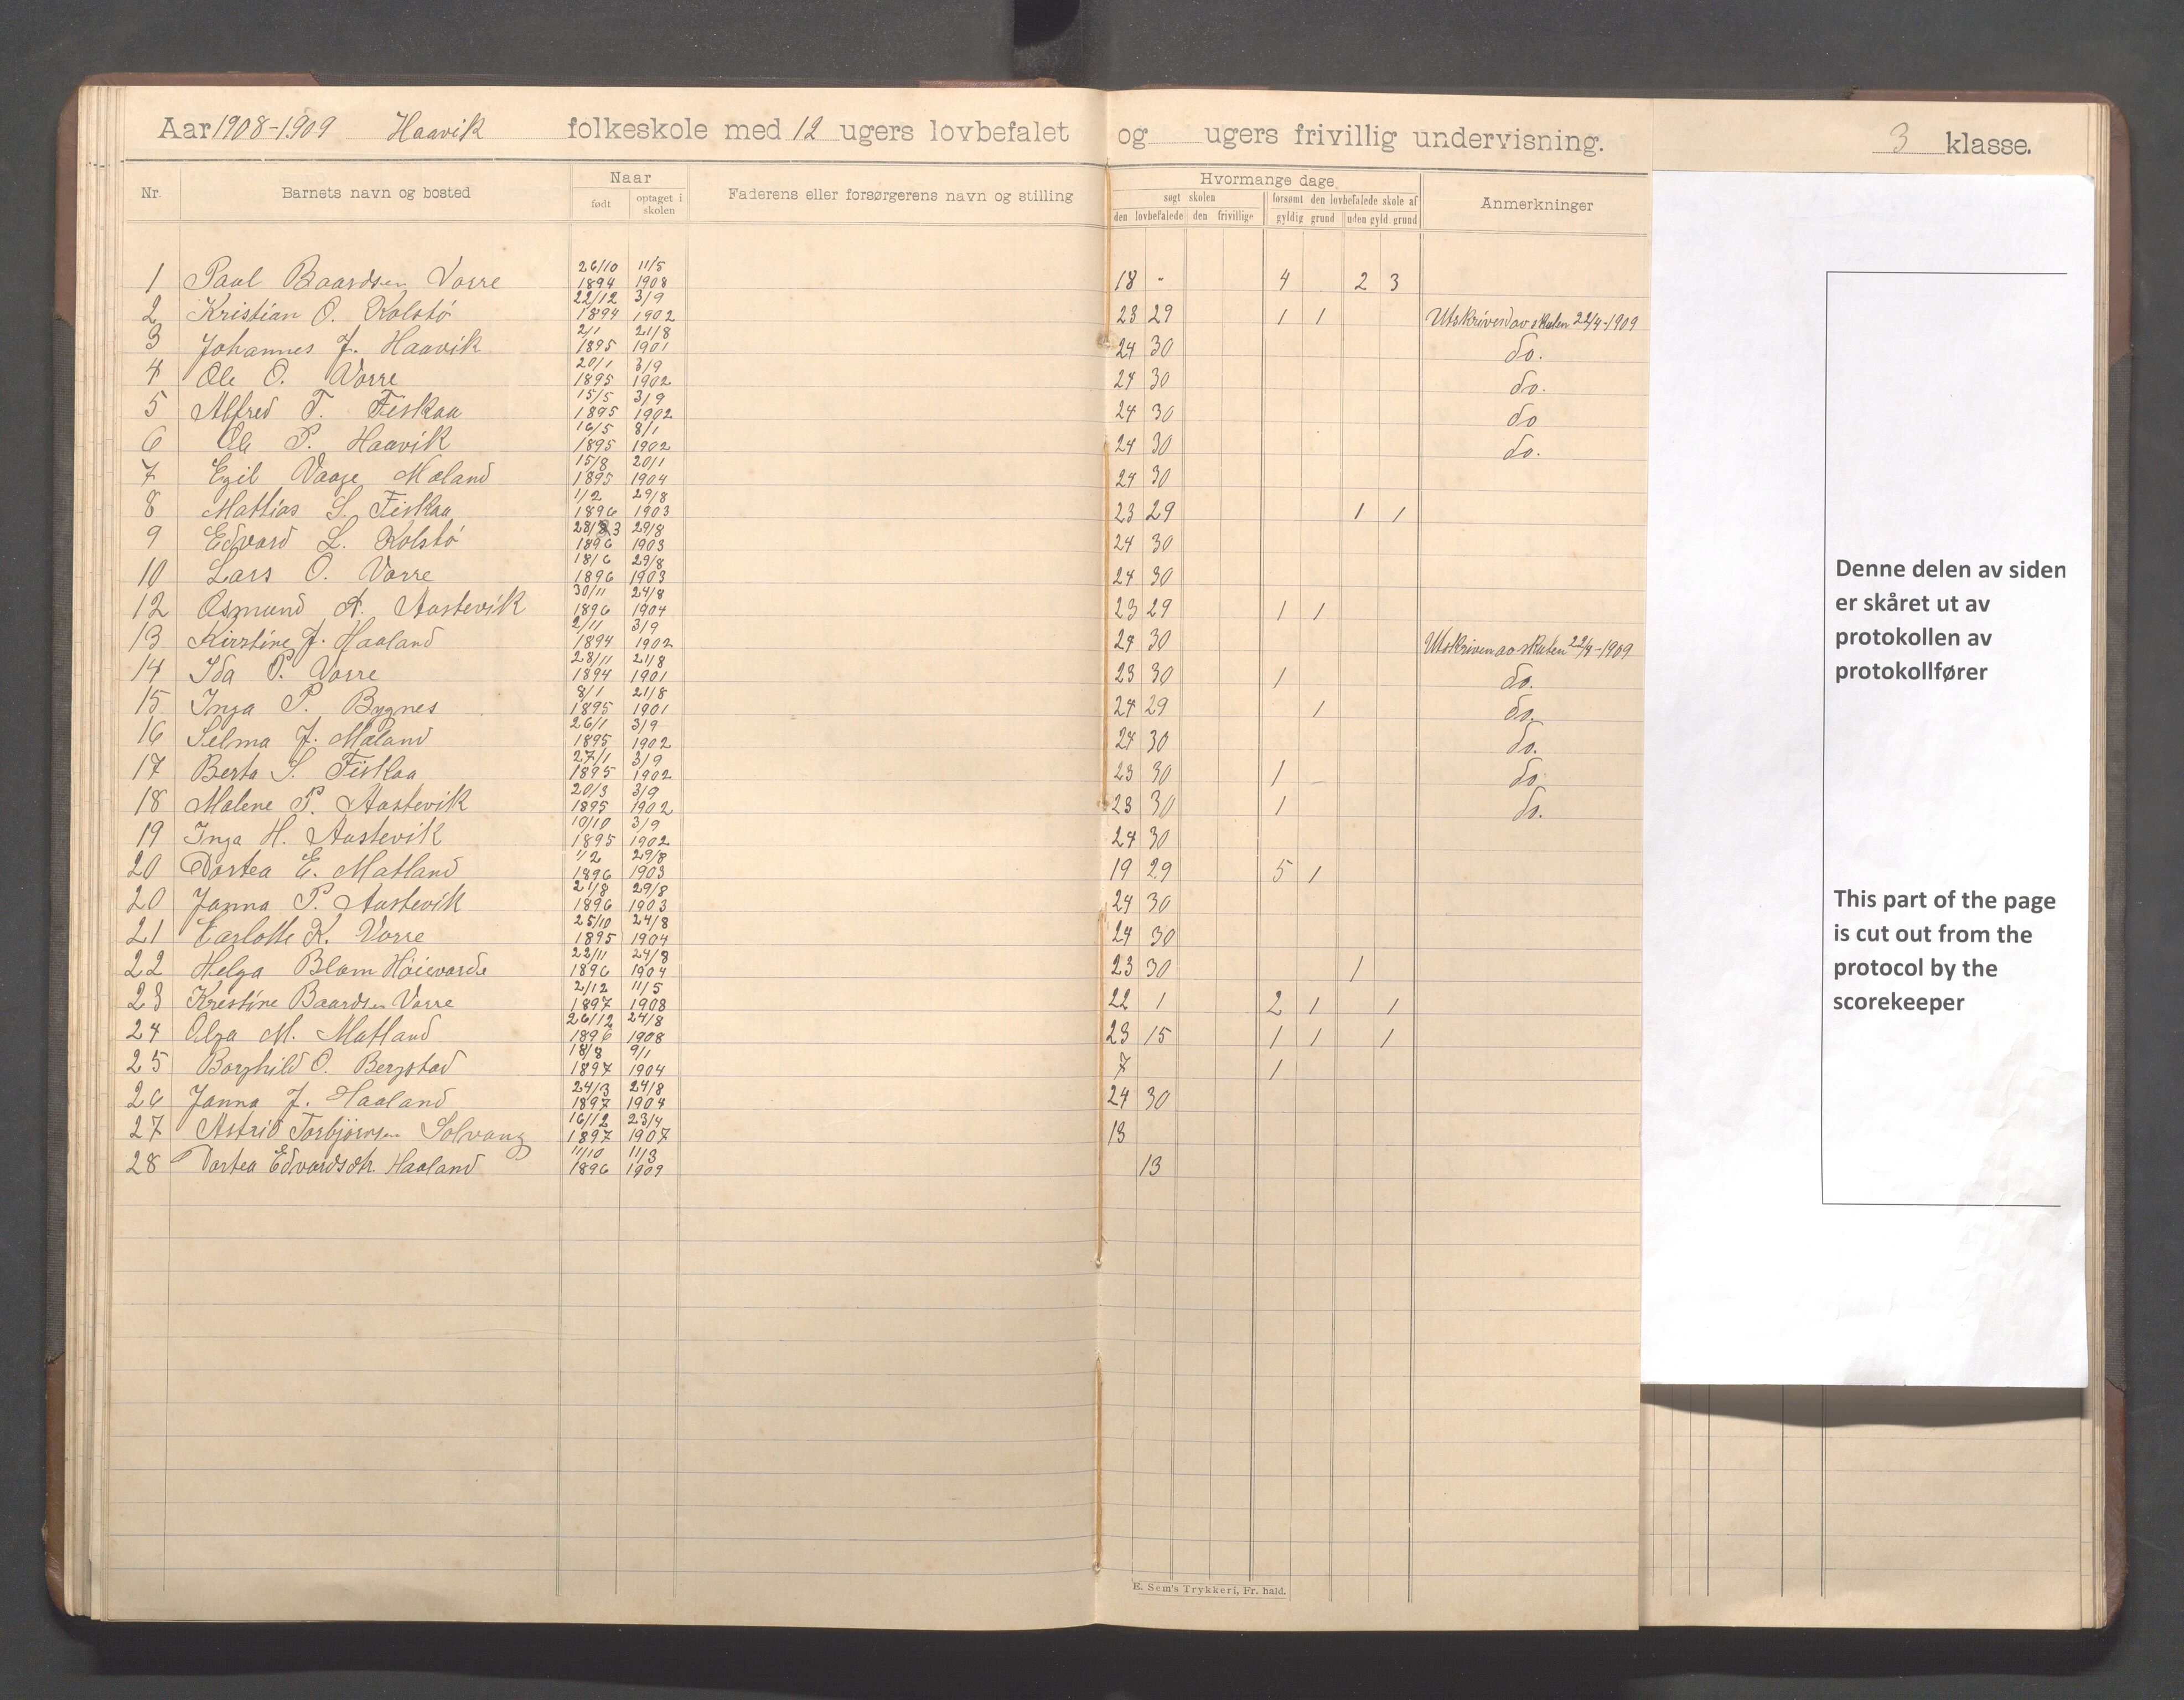 Aar 1908-1909 Haavik folkeskole med 12 ugers lovbefalet og ugers frivillig undervisning. 3 klasse.
Nr. Barnets navn og bosted Naar født optaget i skolen Faderens eller forsørgerens navn og stilling Hvormange dage søgt skolen den lovbefalede den frivillige forsømt den lovbefalede skole af gyldig grund uden gyld. grund Anmerkninger
1 Paul Baardsen Vorre 26/10 1894 11/5 1908 18 - 4 2 3
2 Kristian O. Kolstø 22/12 1894 3/9 1902 23 29 1 1 Utskriven av skulen 22/4-1909
3 Johannes J. Haavik 2/1 1895 21/8 1901 24 30 do.
4 Ole O. Vorre 20/1 1895 3/9 1902 24 30 do.
5 Alfred T. Fiskaa 15/5 1895 3/9 1902 24 30 do
6 Ole P. Haavik 16/5 1895 8/1 1902 24 30 do.
7 Egil Vaage Mæland 15/8 1895 20/1 1904 24 30
8 Mattias S. Fiskaa 1/2 1896 29/8 1903 23 29 1 1
9 Edvard L. Kolstø 28/3 1896 29/8 1903 24 30
10 Lars O. Vorre 18/6 1896 29/8 1903 24 30
12 Osmund A. Aastevik 30/11 1896 24/8 1904 23 29 1 1
13 Kirstine J. Haaland 2/11 1894 3/9 1902 24 30 Utskriven av skulen 22/4-1909
14 Ida P. Vorre 28/11 1894 21/8 1901 23 30 1 do.
15 Inga P. Bygnes 8/1 1895 21/8 1901 24 29 1 do.
16 Selma J. Mæland 26/1 1895 3/9 1902 24 30 do.
17 Berta S. Fiskaa 27/1 1895 3/9 1902 23 30 1 - do.
18 Malene P. Aastevik 20/3 1895 3/9 1902 23 30 1 do.
19 Inga H. Aastevik 10/10 1895 3/9 1902 24 30
20 Dortea E. Matland 1/2 1896 29/8 1903 19 29 5 1
20 Janna P. Aastevik 21/8 1896 29/8 1903 24 30
21 Carlotte K. Vorre 25/10 1895 24/8 1904 24 30
22 Helga Blom Høievarde 22/11 1896 24/8 1904 23 30 1
23 Kristine Baardsen Vorre 2/12 1897 11/5 1908 22 1 2 1 1
24 Olga M. Matland 26/12 1896 24/8 1908 23 15 1 1 1
25 Borghild O. Bergstad 18/8 1897 9/1 1904 7 1
26 Janna J. Haaland 24/3 1897 24/8 1904 24 30
27 Astrid Torbjørnsen Solvang 16/12 1897 23/4 1907 13
28 Dortea Edvardsdtr. Haaland 11/10 1896 11/3 1909 13
E. Sem's Trykkeri, Fr. hald.
Denne delen av siden
er skåret ut av
protokollen av
protokollfører
This part of the page
is cut out from the
protocol by the
scorekeeper